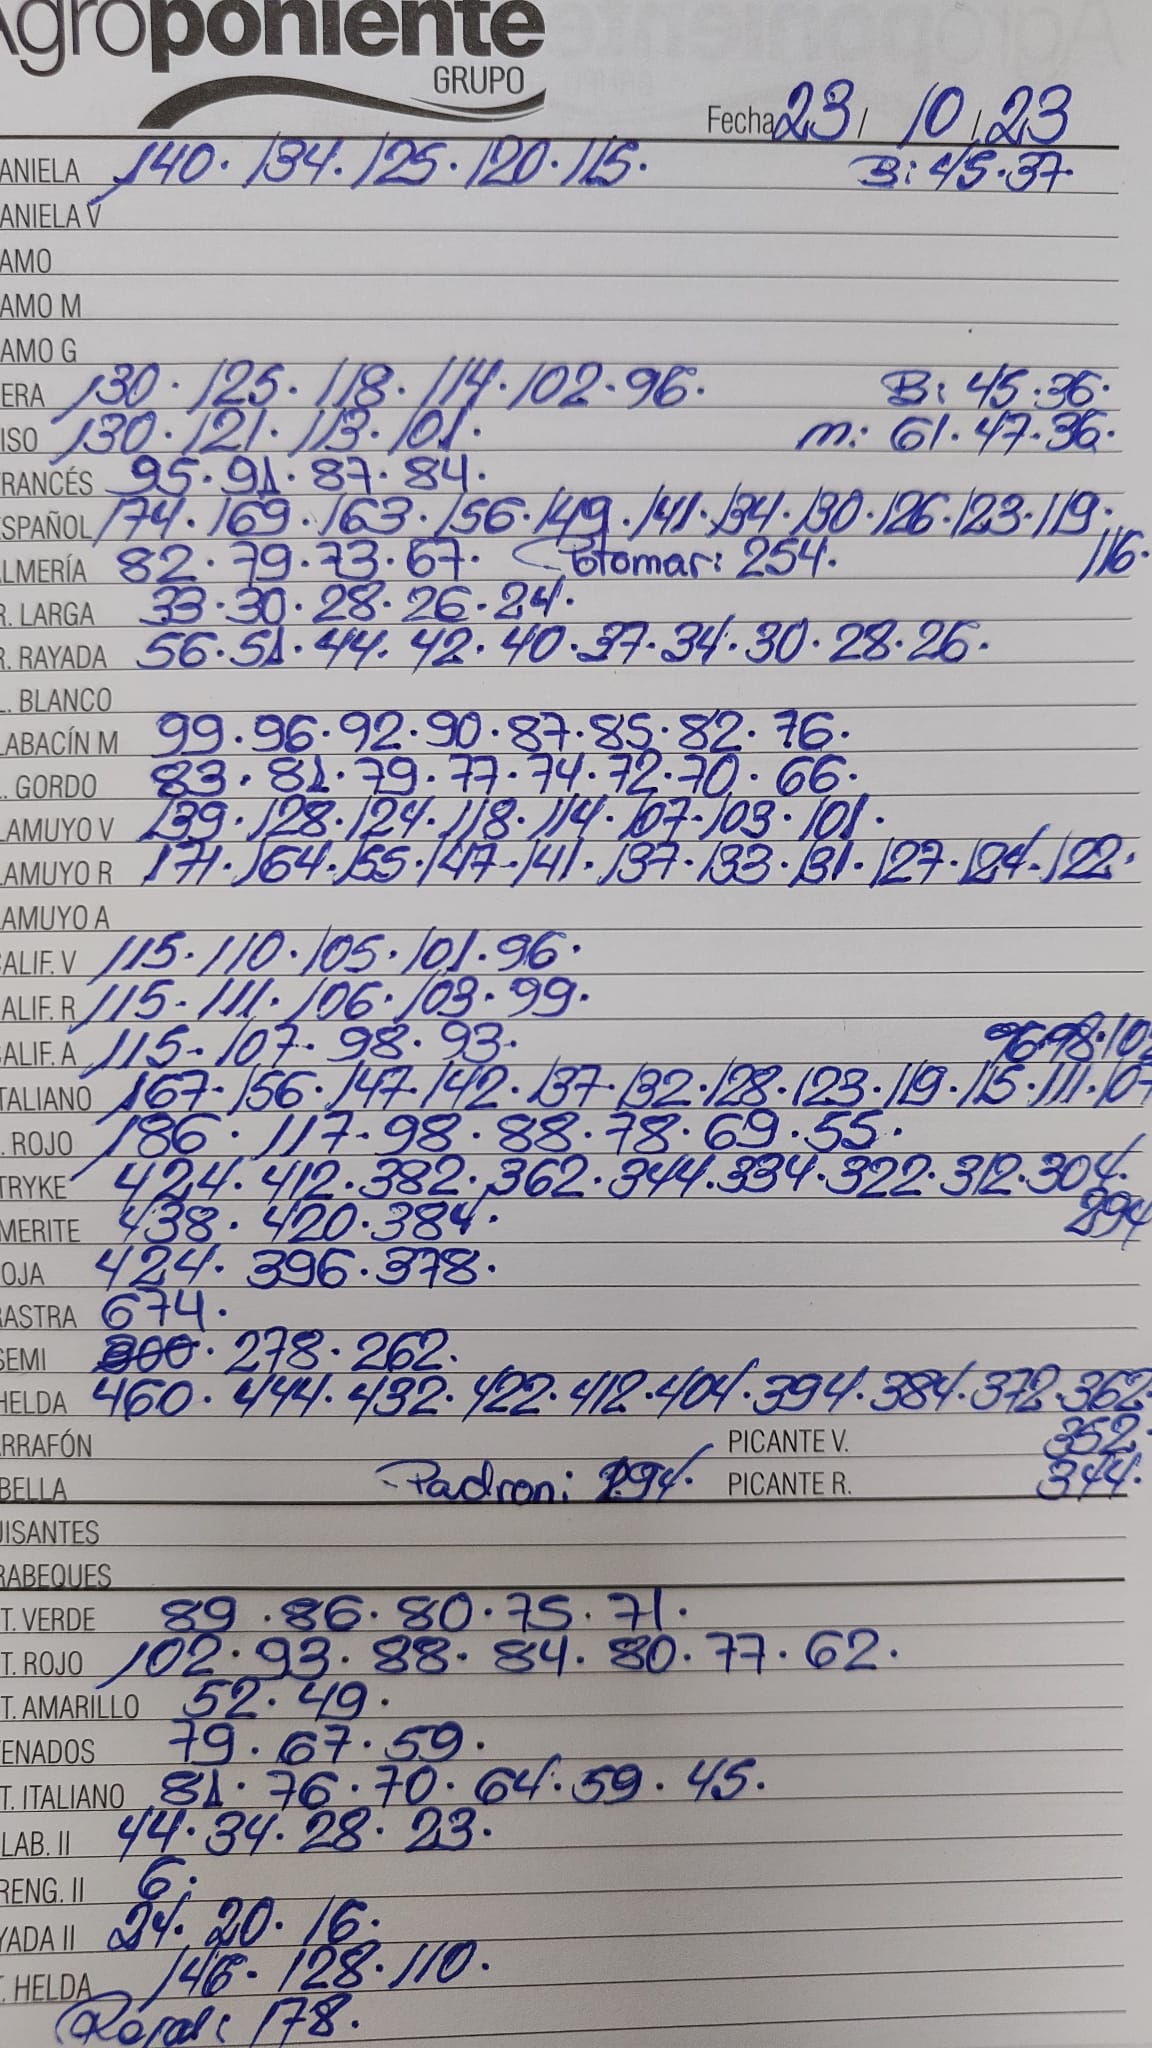 Agroponiente
GRUPO
Fecha 23 / 10 / 23
ANIELA 140. 134. 125. 120. 115. B: 45. 37.
ANIELA V
AMO
AMO M
AMO G
ERA 130. 125. 118. 114. 102. 96. B: 45. 36.
ISO 130. 121. 113. 101. m: 61. 47. 36.
RANCÉS 95. 91. 87. 84.
ESPAÑOL 174. 169. 163. 156. 149. 141. 134. 130. 126. 123. 119. 116.
LMERÍA 82. 79. 73. 67. Potomar: 254.
R. LARGA 33. 30. 28. 26. 24.
R. RAYADA 56. 51. 44. 42. 40. 37. 34. 30. 28. 26.
L. BLANCO
LABACÍN M 99. 96. 92. 90. 87. 85. 82. 76.
. GORDO 83. 81. 79. 77. 74. 72. 70. 66.
LAMUYO V 139. 128. 124. 118. 114. 107. 103. 101.
LAMUYO R 171. 164. 155. 147. 141. 137. 133. 131. 127. 124. 122.
LAMUYO A
CALIF. V 115. 110. 105. 101. 96.
ALIF. R 115. 111. 106. 103. 99.
ALIF. A 115. 107. 98. 93. 96. 98. 102
TALIANO 167. 156. 147. 142. 137. 132. 128. 123. 119. 115. 111. 107
. ROJO 186. 117. 98. 88. 78. 69. 55.
TRYKE 424. 412. 382. 362. 344. 334. 322. 312. 304. 294
MERITE 438. 420. 384.
OJA 424. 396. 378.
RASTRA 674.
SEMI 300. 278. 262.
HELDA 460. 444. 432. 422. 412. 404. 394. 384. 372. 362.
ARRAFÓN PICANTE V. 352.
BELLA Padron: 294. PICANTE R. 344.
UISANTES
RABEQUES
T. VERDE 89. 86. 80. 75. 71.
T. ROJO 102. 93. 88. 84. 80. 77. 62.
T. AMARILLO 52. 49.
ENADOS 79. 67. 59.
T. ITALIANO 81. 76. 70. 64. 59. 45.
LAB. II 44. 34. 28. 23.
RENG. II 6.
YADA II 24. 20. 16.
. HELDA 146. 128. 110.
178.